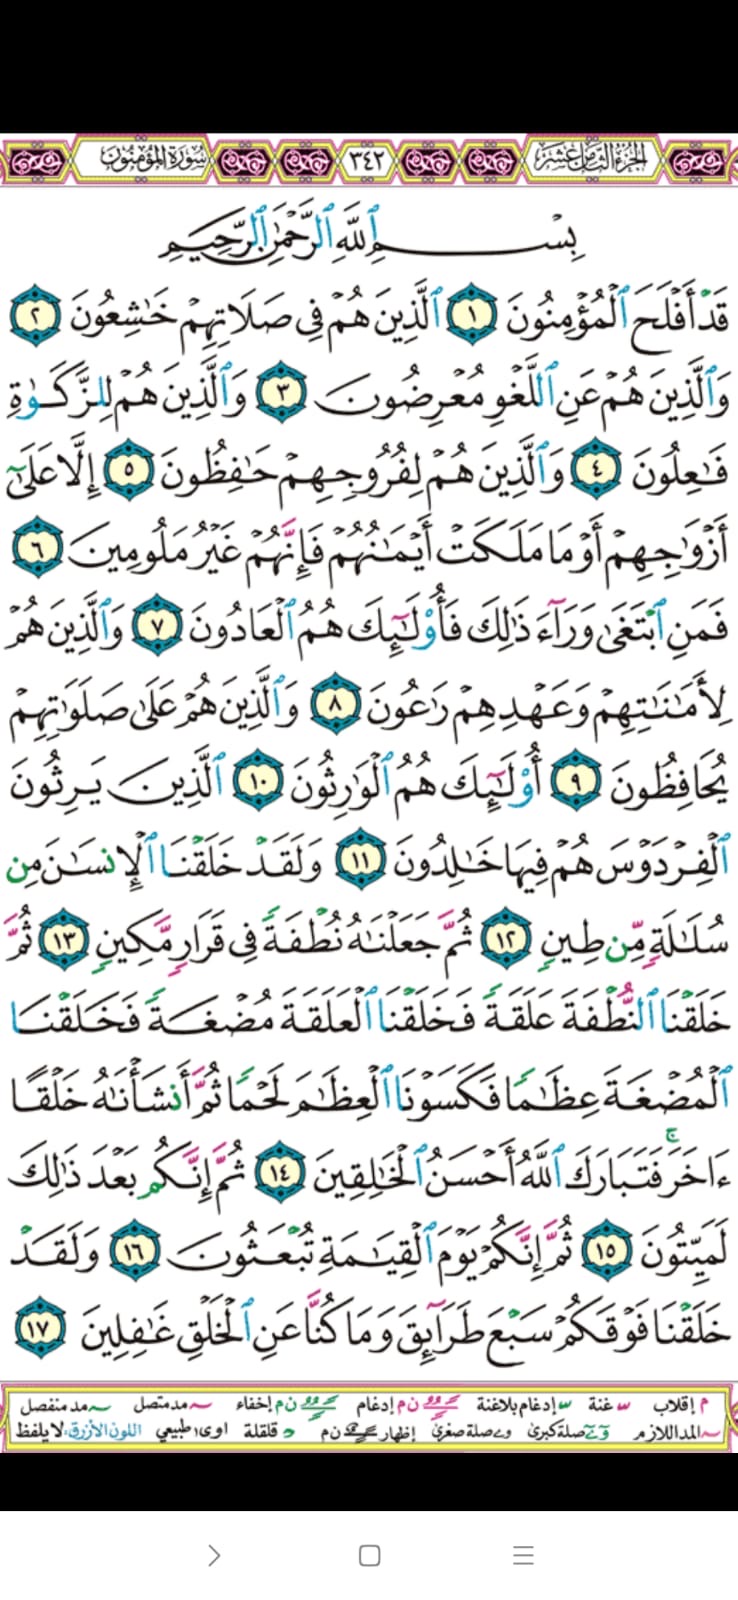 الجزء الثامن عشر ٣٤٢ سورة المؤمنون
بِسْمِ ٱللَّهِ ٱلرَّحْمَٰنِ ٱلرَّحِيمِ
قَدْ أَفْلَحَ ٱلْمُؤْمِنُونَ ١ ٱلَّذِينَ هُمْ فِى صَلَاتِهِمْ خَٰشِعُونَ ٢
وَٱلَّذِينَ هُمْ عَنِ ٱللَّغْوِ مُعْرِضُونَ ٣ وَٱلَّذِينَ هُمْ لِلزَّكَوٰةِ
فَٰعِلُونَ ٤ وَٱلَّذِينَ هُمْ لِفُرُوجِهِمْ حَٰفِظُونَ ٥ إِلَّا عَلَىٰٓ
أَزْوَٰجِهِمْ أَوْ مَا مَلَكَتْ أَيْمَٰنُهُمْ فَإِنَّهُمْ غَيْرُ مَلُومِينَ ٦
فَمَنِ ٱبْتَغَىٰ وَرَآءَ ذَٰلِكَ فَأُو۟لَٰٓئِكَ هُمُ ٱلْعَادُونَ ٧ وَٱلَّذِينَ هُمْ
لِأَمَٰنَٰتِهِمْ وَعَهْدِهِمْ رَٰعُونَ ٨ وَٱلَّذِينَ هُمْ عَلَىٰ صَلَوَٰتِهِمْ
يُحَافِظُونَ ٩ أُو۟لَٰٓئِكَ هُمُ ٱلْوَٰرِثُونَ ١٠ ٱلَّذِينَ يَرِثُونَ
ٱلْفِرْدَوْسَ هُمْ فِيهَا خَٰلِدُونَ ١١ وَلَقَدْ خَلَقْنَا ٱلْإِنسَٰنَ مِن
سُلَٰلَةٍ مِّن طِينٍ ١٢ ثُمَّ جَعَلْنَٰهُ نُطْفَةً فِى قَرَارٍ مَّكِينٍ ١٣ ثُمَّ
خَلَقْنَا ٱلنُّطْفَةَ عَلَقَةً فَخَلَقْنَا ٱلْعَلَقَةَ مُضْغَةً فَخَلَقْنَا
ٱلْمُضْغَةَ عِظَٰمًا فَكَسَوْنَا ٱلْعِظَٰمَ لَحْمًا ثُمَّ أَنشَأْنَٰهُ خَلْقًا
ءَاخَرَ ۚ فَتَبَارَكَ ٱللَّهُ أَحْسَنُ ٱلْخَٰلِقِينَ ١٤ ثُمَّ إِنَّكُم بَعْدَ ذَٰلِكَ
لَمَيِّتُونَ ١٥ ثُمَّ إِنَّكُمْ يَوْمَ ٱلْقِيَٰمَةِ تُبْعَثُونَ ١٦ وَلَقَدْ
خَلَقْنَا فَوْقَكُمْ سَبْعَ طَرَآئِقَ وَمَا كُنَّا عَنِ ٱلْخَلْقِ غَٰفِلِينَ ١٧
م إقلاب غنة إدغام بلاغنة ن م إدغام ن م إخفاء مد متصل مد منفصل
المد اللازم صلة كبرى صلة صغرى إظهار ن م قلقلة اوى طبيعي اللون الأزرق، لا يلفظ